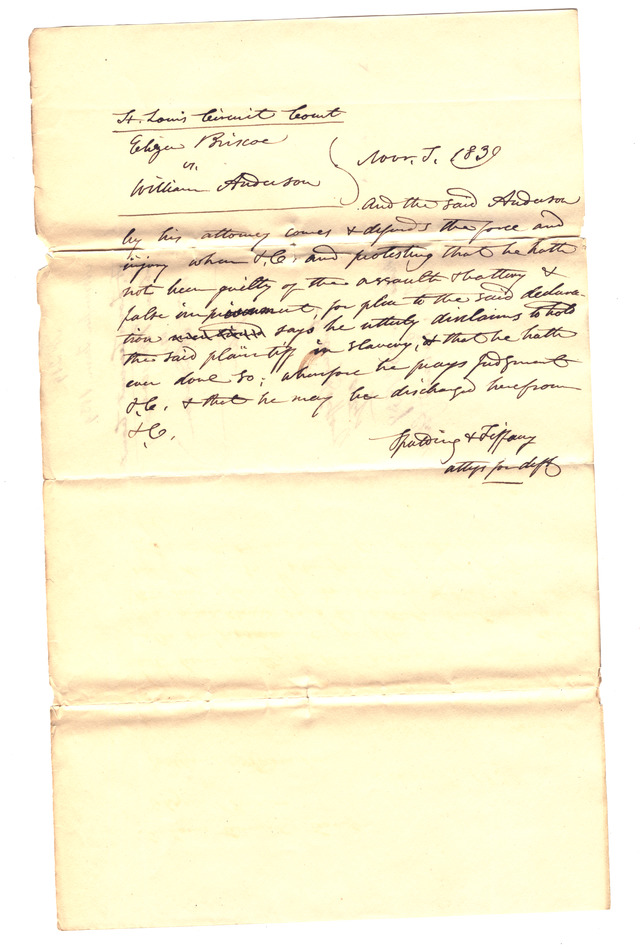 St. Louis Circuit Court
Eliza Briscoe
vs.
William Anderson
Novr. T. 1839
And the said Anderson
by his attorney comes & defends the force and
injury when &.C. and protesting that he hath
not been guilty of the assault & battery &
false imprisonment, for plea to the said declara-
tion says he utterly disclaims to hold
the said plaintiff in slavery, & that he hath
ever done so; wherefore he prays judgment
&.C. & that he may be discharged herefrom
&.C.
Spalding & Tiffany
attys for deft